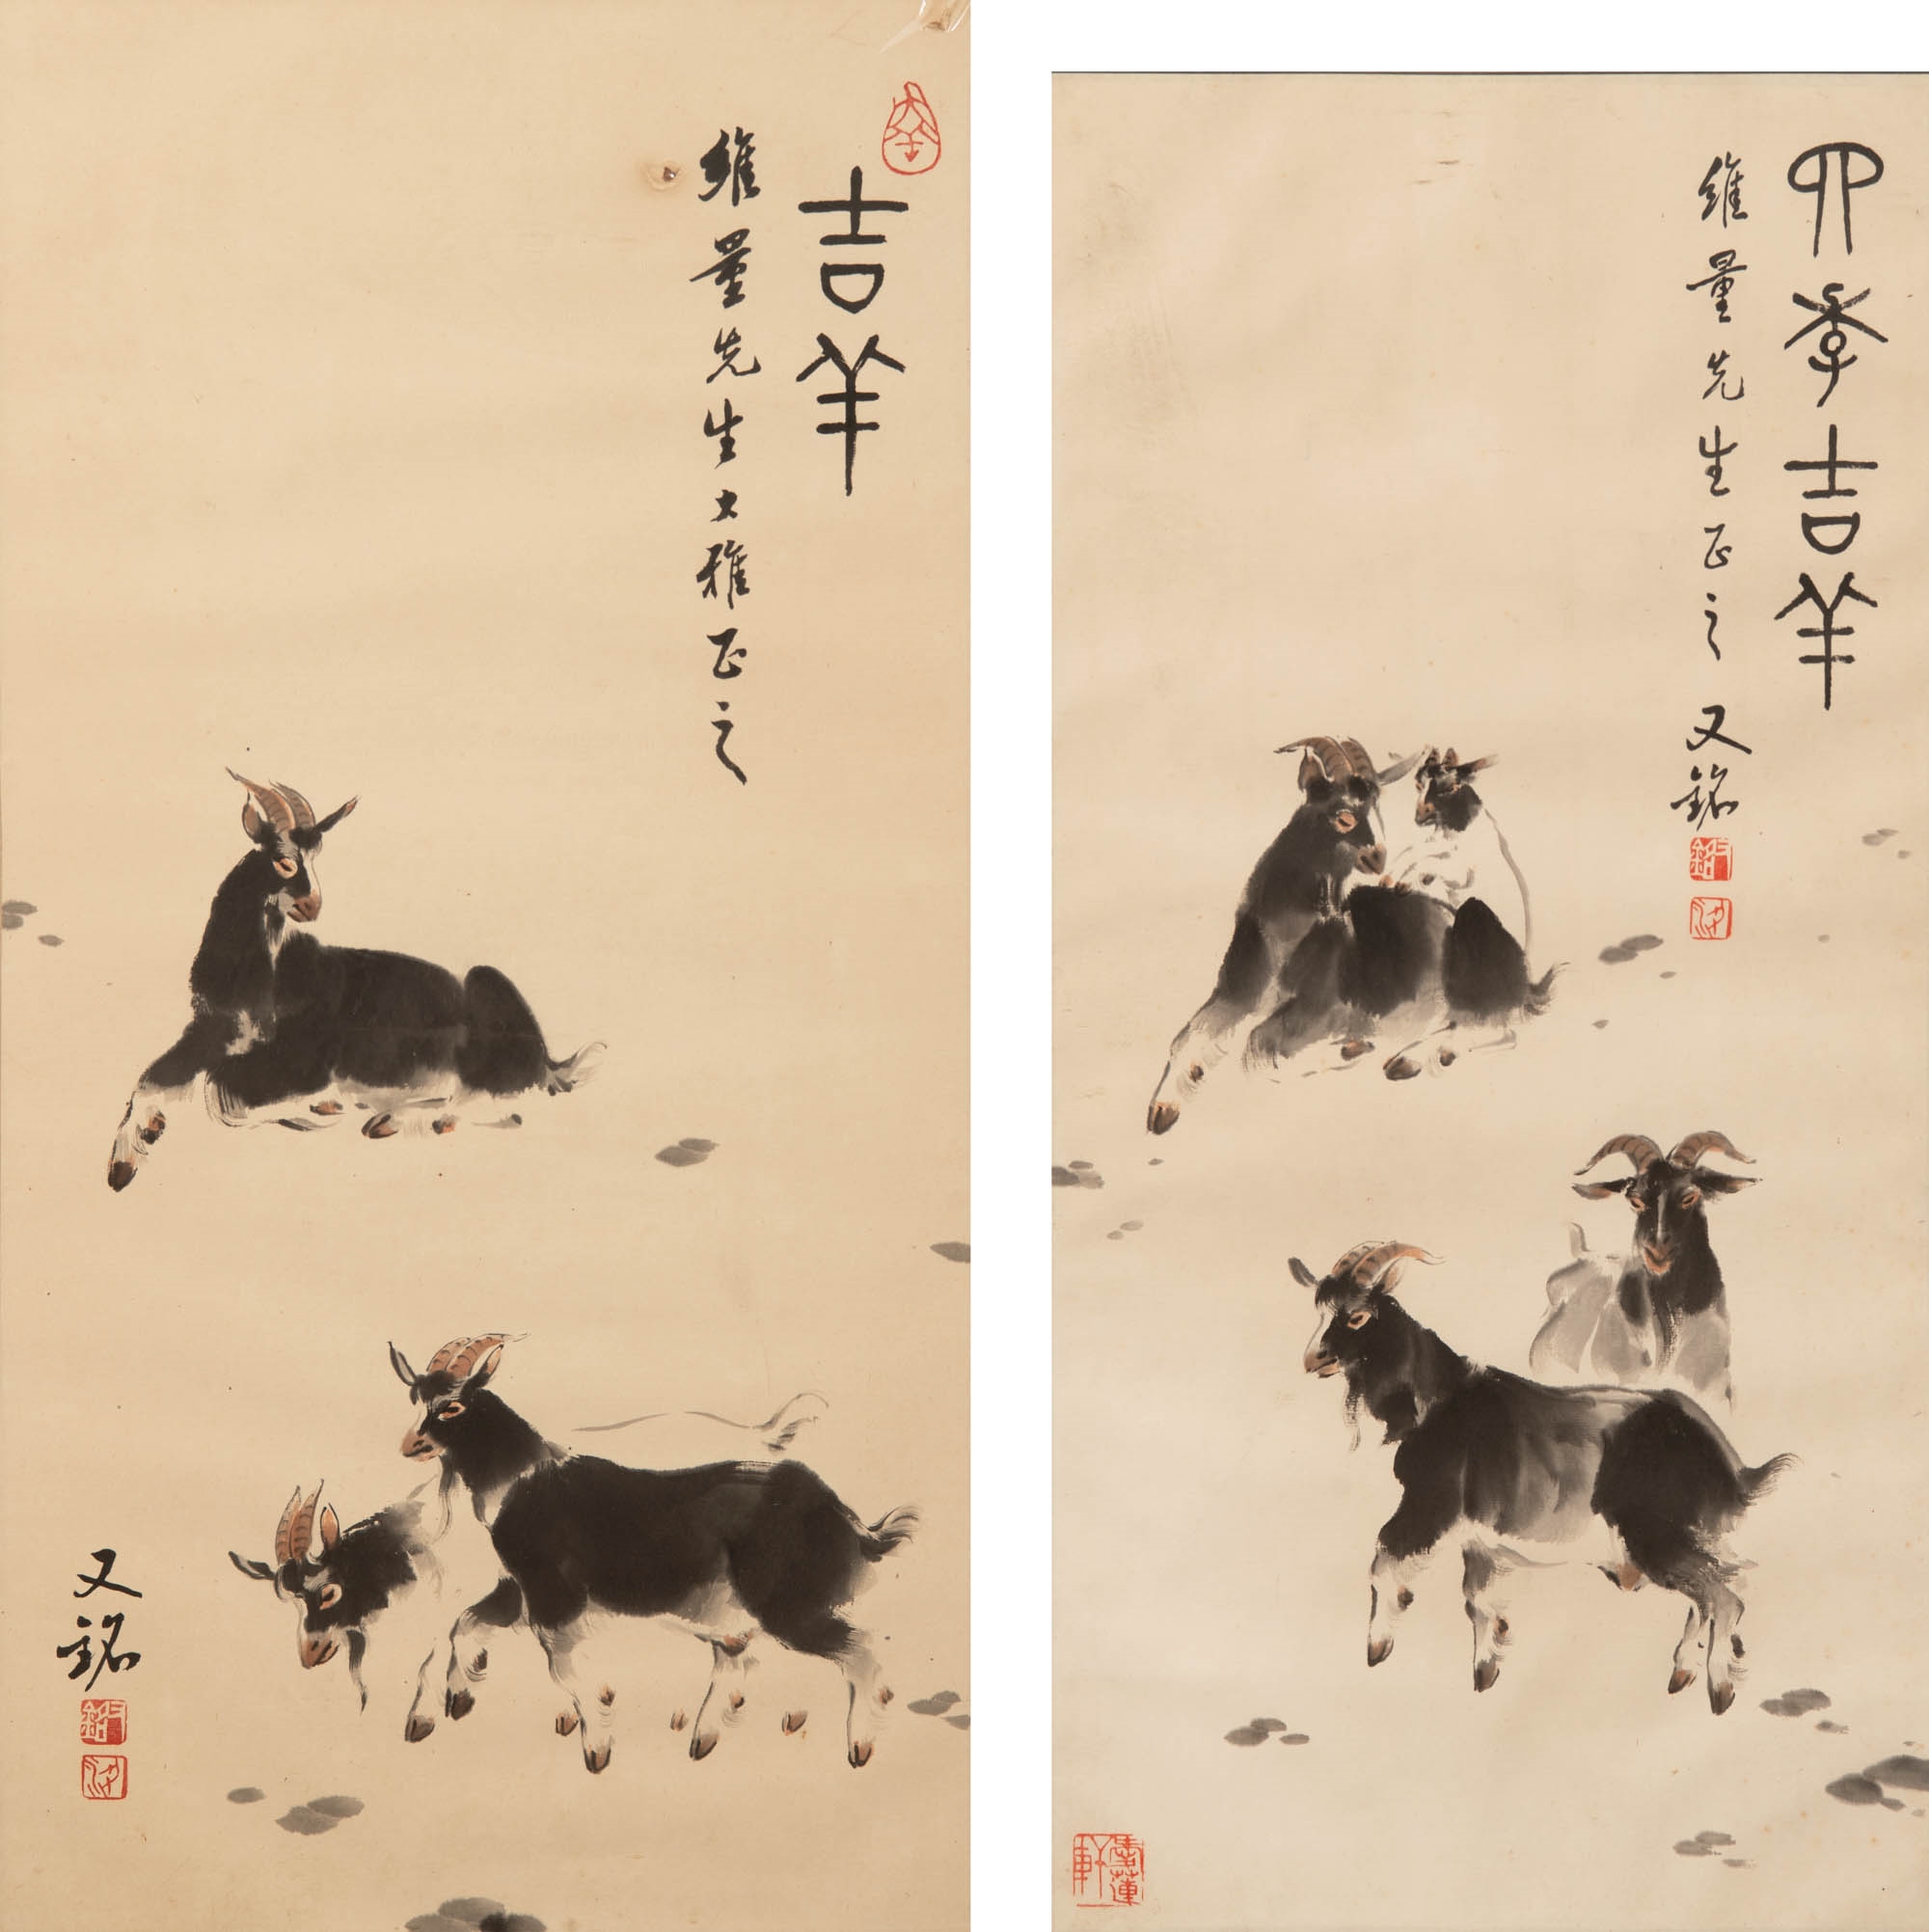 吉羊
維量先生大雅正之
又銘
四季吉羊
維量先生正之 又銘